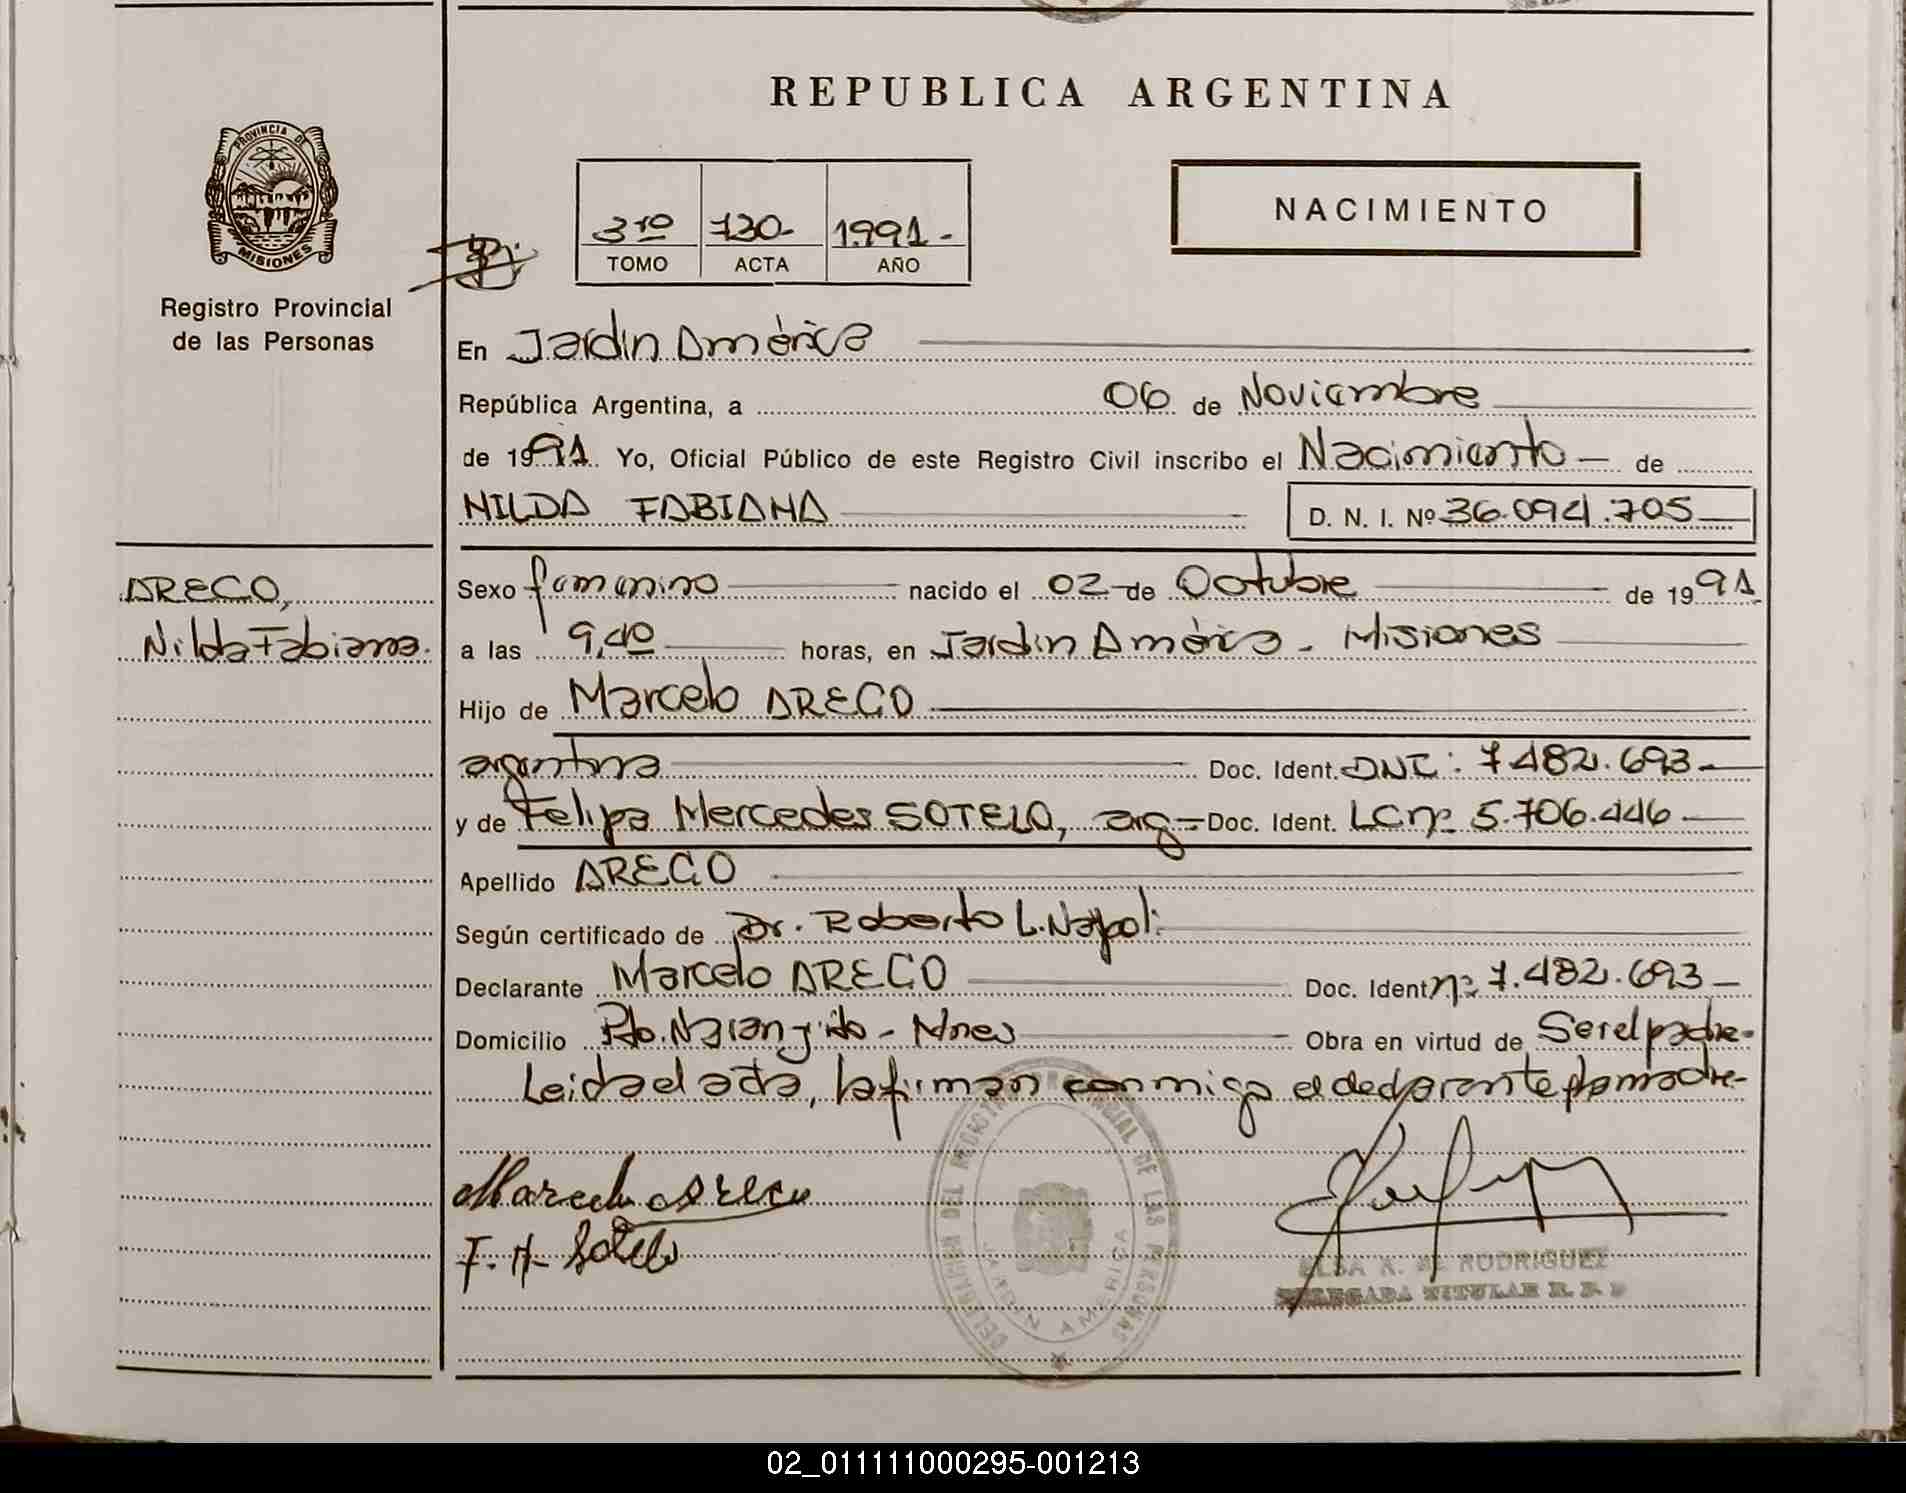 REPUBLICA ARGENTINA
PROVINCIA DE
MISIONES
Registro Provincial
de las Personas
3ro 730- 1991.-
TOMO ACTA AÑO
NACIMIENTO
En Jardín América
República Argentina, a 06 de Noviembre
de 1991. Yo, Oficial Público de este Registro Civil inscribo el Nacimiento — de
NILDA FABIANA D. N. I. Nº 36.094.705
ARECO,
Nilda Fabiana.
Sexo femenino nacido el 02 de Octubre de 1991
a las 9,40 horas, en Jardín América - Misiones
Hijo de Marcelo ARECO
argentina Doc. Ident. DNI: 7.482.693-
y de Felipa Mercedes SOTELO, arg- Doc. Ident. LC nº 5.706.446
Apellido ARECO
Según certificado de Dr. Roberto L. Napoli
Declarante Marcelo ARECO Doc. Ident nº 7.482.693-
Domicilio Pto. Naranjito - Mnes Obra en virtud de Ser el padre-
Leida el acta, la firman conmigo el declarante y la madre-
Marcelo Areco
F. M. Sotelo
DELEGACION DEL REGISTRO PROVINCIAL DE LAS PERSONAS
JARDIN AMERICA
ELSA RODRIGUEZ
DELEGADA TITULAR R. P. P
02_011111000295-001213